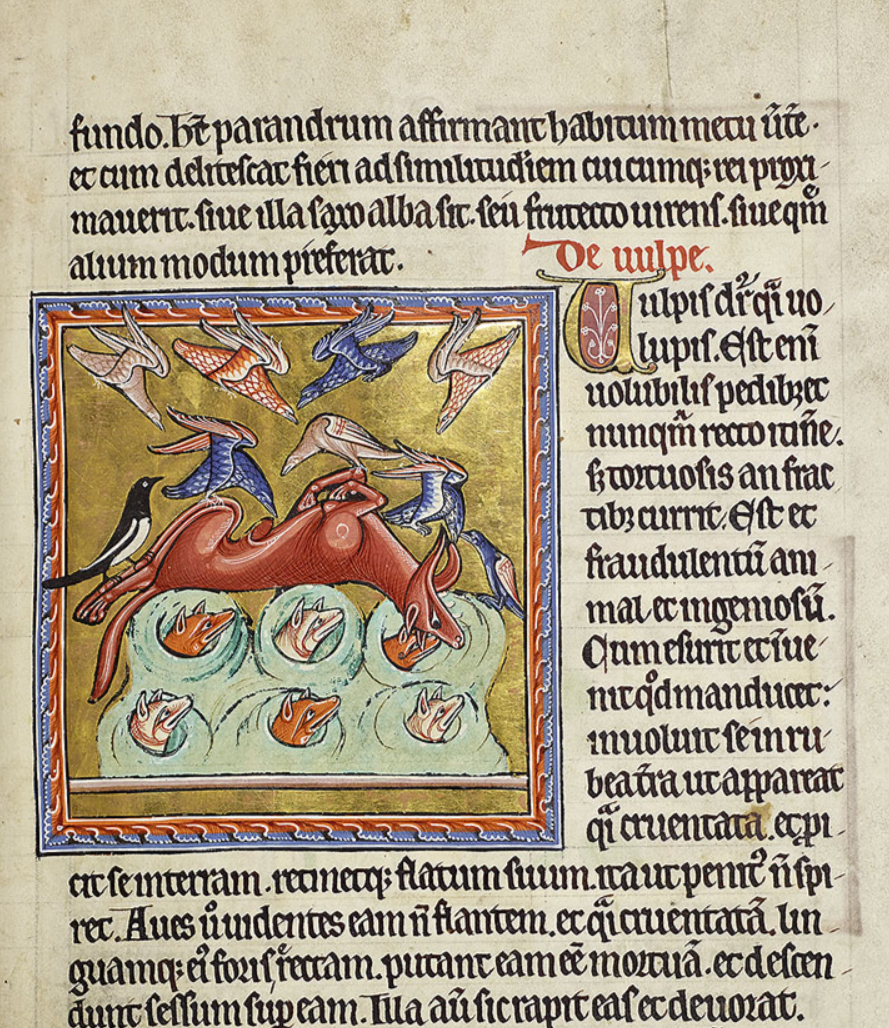 fundo. hc̄ parandrum affirmant habitum metu u̅t̅e.
et cum delitescat fieri ad similitudiem cuicumq; rei proxi-
mauerit. siue illa saxo alba sit. seu frutecto uirens. siue qm̊
alium modum p̄ferat.
De uulpe.
Uulpis dr̄ q̄i uo-
lupis. Est eni̅
uolubilis pedibȝ et
nunqm̅ recto itine̅.
s; tortuosis anfrac
tibȝ currit. Est et
fraudulentu̅ ani-
mal et ingeniosu̅.
Cum esurit et i̅ue-
nit qd̊ manducet:
inuoluit se in ru-
bea t̅ra ut appareat
q̄i cruentata. et ꝓi-
cit se in terram. retinetq; flatum suum. ita ut penit᷒ n̅ spi-
ret. Aues ů uidentes eam n̅ flantem. et q̄i cruentata̅. lin-
guamq; ei᷒ foris r̅ectam. putant eam ee̅ mortua̅. et descen-
dunt sessum sup̱ eam. Illa au̅ sic rapit eas et deuorat.